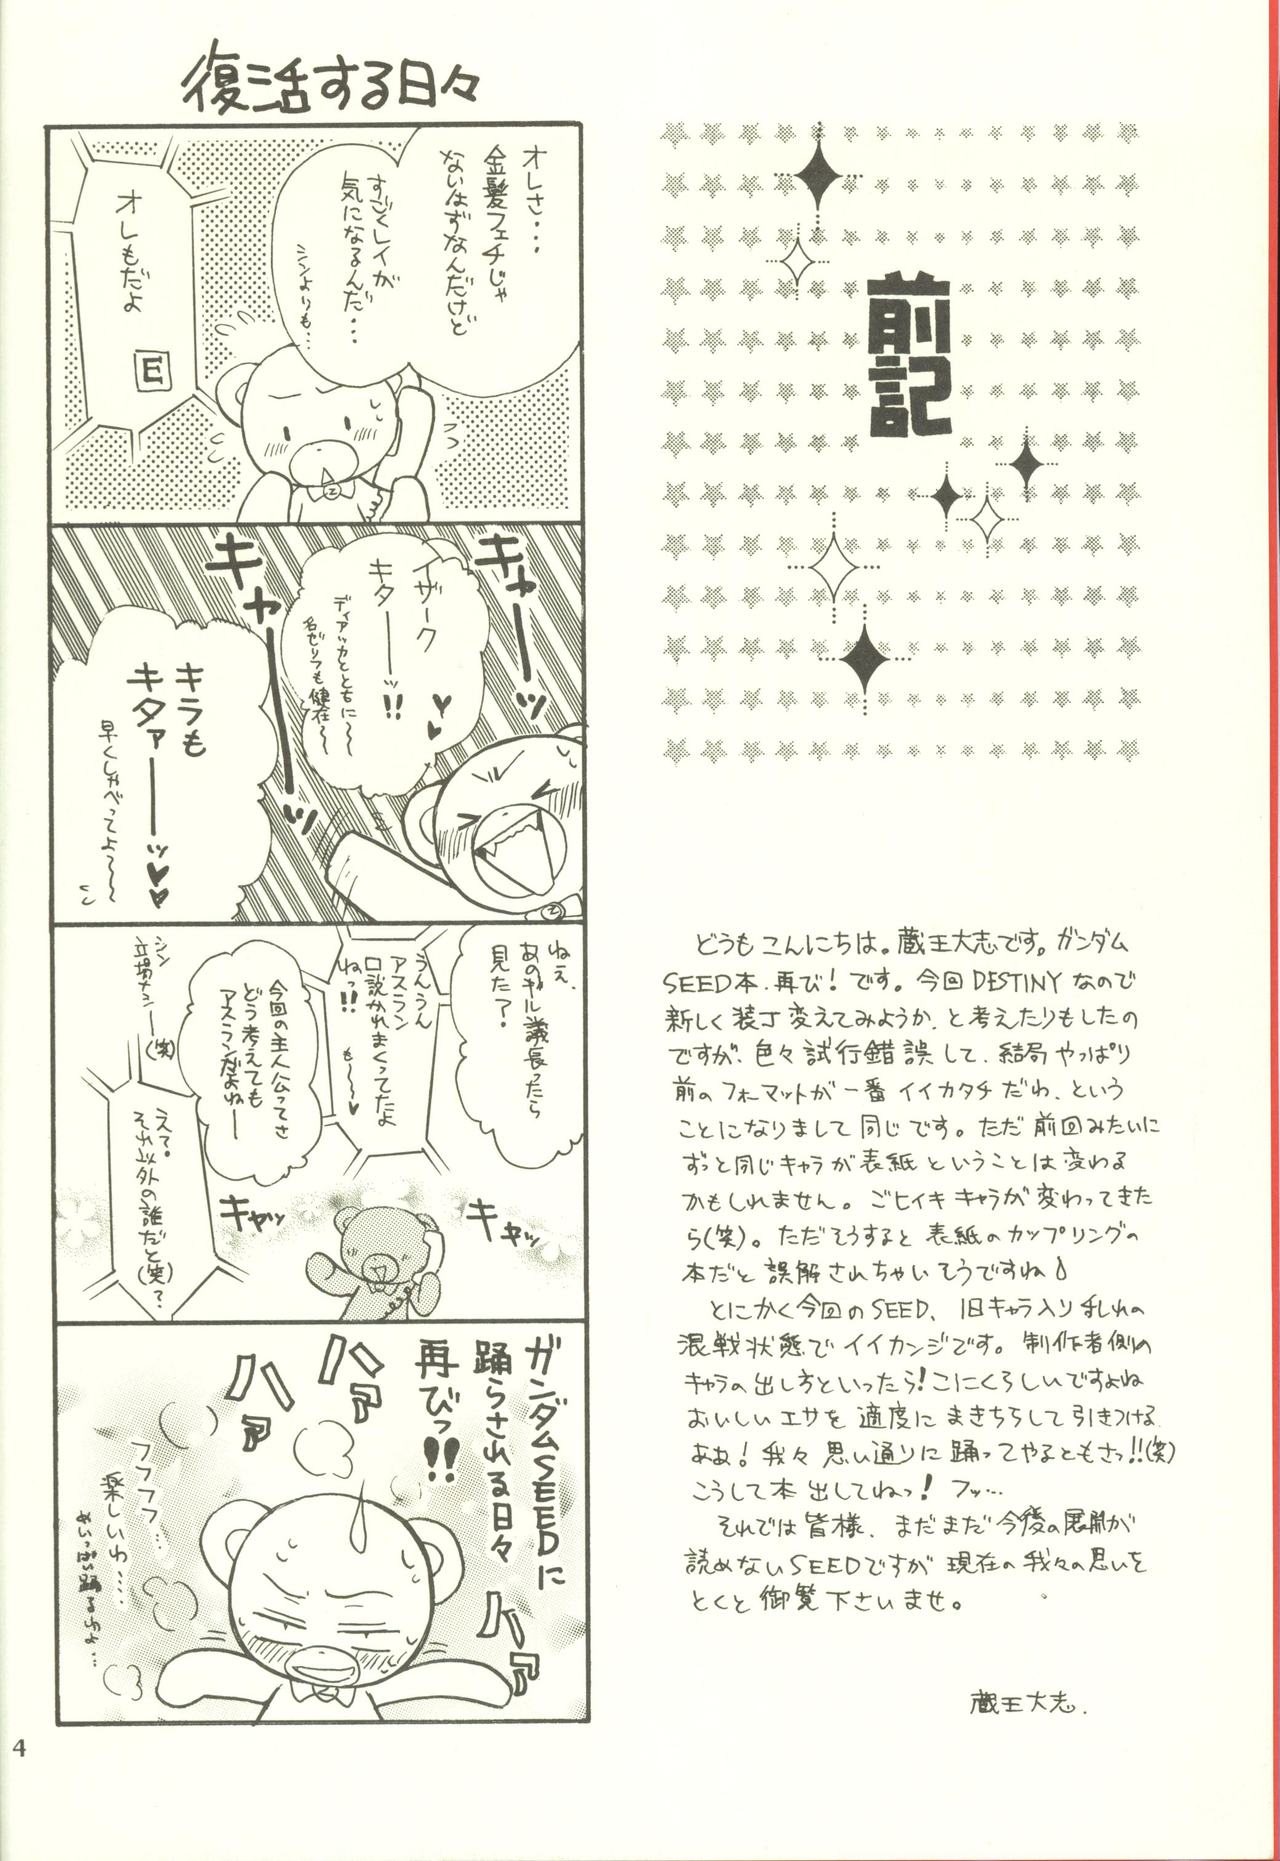 前記
どうもこんにちは。蔵王大志です。ガンダム
SEED本、再び!です。今回DESTINYなので
新しく装丁変えてみようか、と考えたりもしたの
ですが、色々試行錯誤して、結局やっぱり
前のフォーマットが一番イイカタチだわ、という
ことになりまして同じです。ただ前回みたいに
ずっと同じキャラが表紙ということは変わる
かもしれません。ごヒイキキャラが変わってきた
ら(笑)。ただそうすると表紙のカップリングの
本だと誤解されちゃいそうですね♪
とにかく今回のSEED、旧キャラ入り乱れの
混戦状態でイイカンジです。制作者側の
キャラの出し方といったら!こにくらしいですよね
おいしいエサを適度にまきちらして引きつける
ああ!我々思い通りに踊ってやるともさっ!!(笑)
こうして本出してねっ!フッ…
それでは皆様、まだまだ今後の展開が
読めないSEEDですが現在の我々の思いを
とくと御覧下さいませ。
蔵王大志.
復活する日々
オレさ・・・
金髪フェチじゃ
ないはずなんだけど
すごくレイが
気になるんだ・・・
シンよりも…
オレもだよ
E
キャーッ
イザーク
キターーッ!!♥♥
ディアッカとともに〜
名ゼリフも健在〜
キャーーッ
キラも
キタァーーッ♥♥
早くしゃべってよ〜〜
ねえ、
あのギル議長ったら
見た?
うんうん
アスラン
口説かれまくってたよ
ねっ!!
も〜〜♥
今回の主人公ってさ
どう考えても
アスランだよねー
シン
立場ナシー(笑)
えて。
それ以外の誰だと(笑)?
キャッ
キャッ
ガンダムSEEDに
踊らされる日々
再びっ!!
ハァ
ハァ
ハァ
フフフフ…
楽しいわ……
めいっぱい踊るわよ…
4